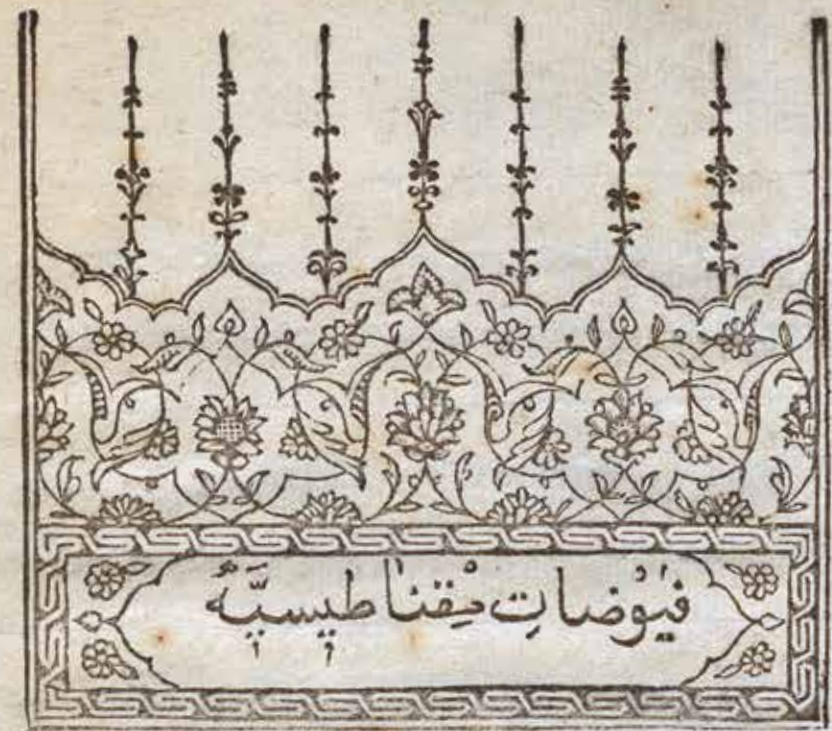 فيُوضاتِ مِقْناطيسيَّهْ